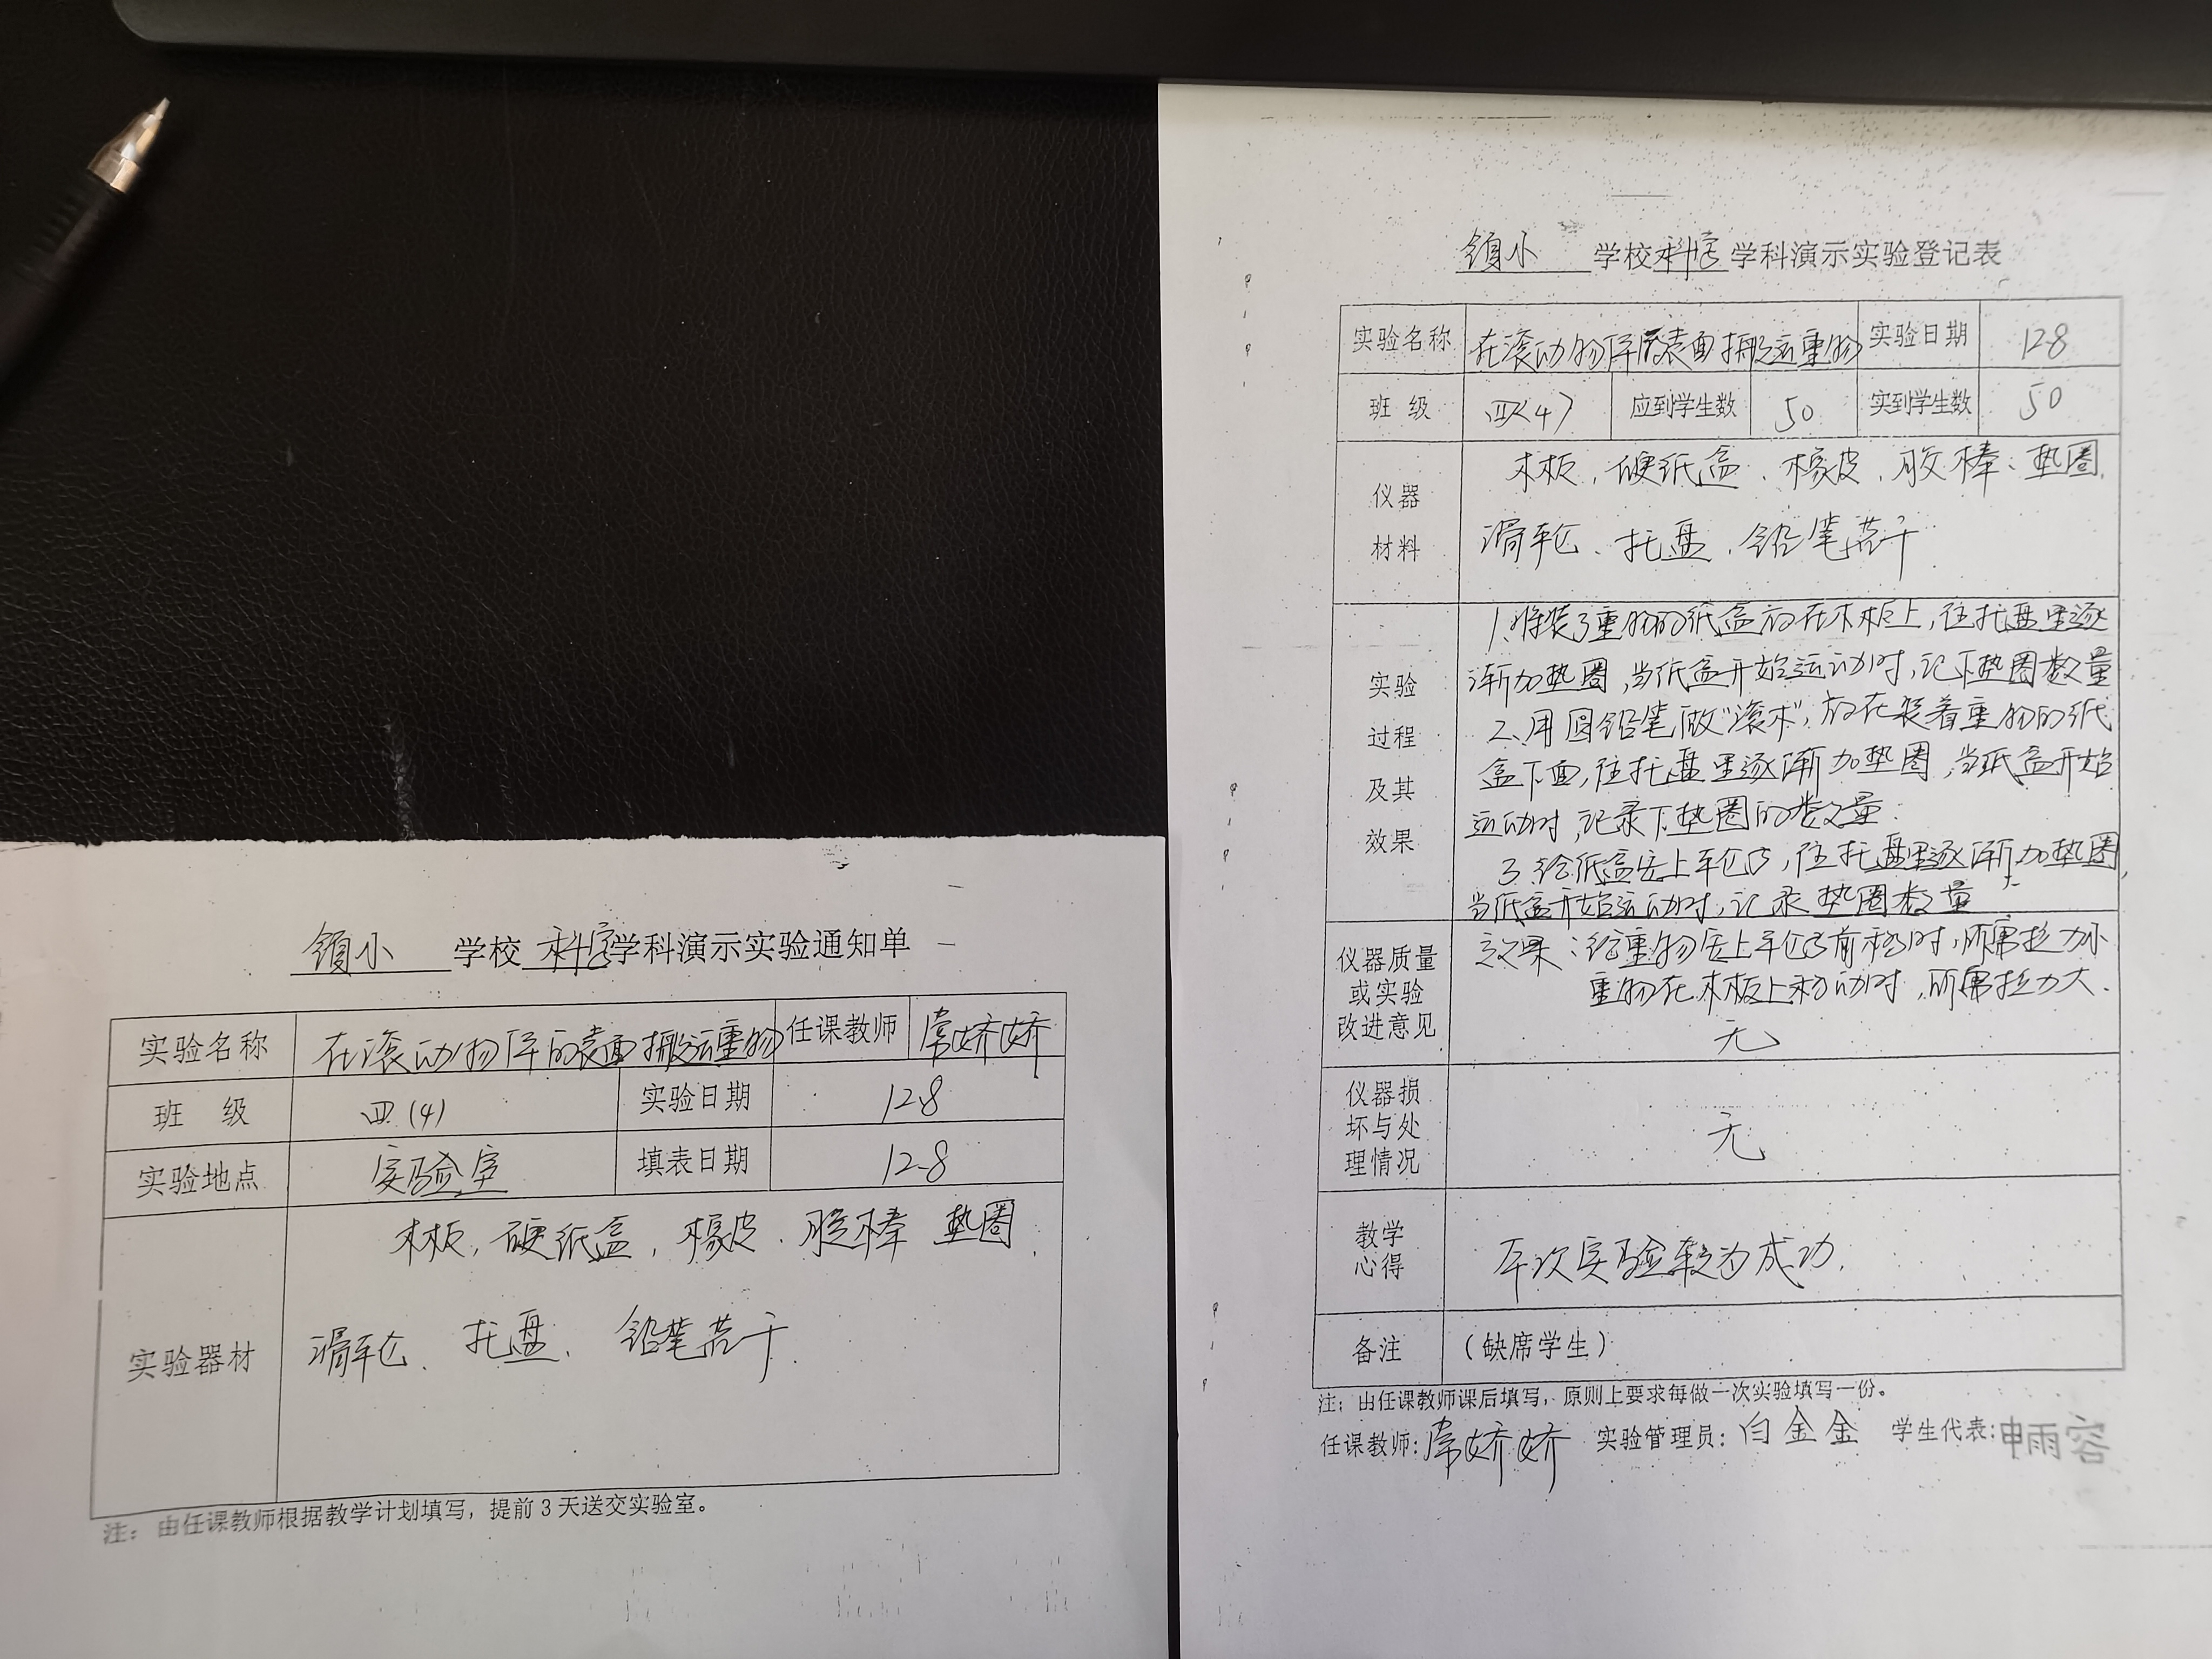 小 学校 科学 学科演示实验通知单
实验名称 在滚动物体的表面搬运重物 任课教师 常娇娇
班 级 四(4) 实验日期 12.8
实验地点 实验室 填表日期 12.8
木板,硬纸盒,橡皮.胶棒 垫圈.
实验器材 滑车轮、托盘、铅笔若干.
注:由任课教师根据教学计划填写,提前3天送交实验室。
小 学校 科学 学科演示实验登记表
实验名称 在滚动物体表面搬运重物 实验日期 12.8
班 级 四(4) 应到学生数 50 实到学生数 50
仪器
材料
木板,硬纸盒、橡皮、胶棒、垫圈.
滑车轮、托盘、铅笔若干
实验
过程
及其
效果
1.将装了重物的纸盒放在木板上,往托盘里逐
渐加垫圈,当纸盒开始运动时,记下垫圈数量
2、用圆铅笔做“滚木”,放在装着重物的纸
盒下面,往托盘里逐渐加垫圈,当纸盒开始
运动时,记录下垫圈的数量.
3.给纸盒安上车轮后,往托盘里逐渐加垫圈,
当纸盒开始运动时,记录垫圈数量
仪器质量
或实验
改进意见
效果:给重物安上车轮后前移时,所需拉力小
重物在木板上移动时,所需拉力大.
无
仪器损
坏与处
理情况
无
教学
心得
本次实验较为成功.
备注 (缺席学生)
注:由任课教师课后填写,原则上要求每做一次实验填写一份。
任课教师:常娇娇 实验管理员:白金金 学生代表:申雨容